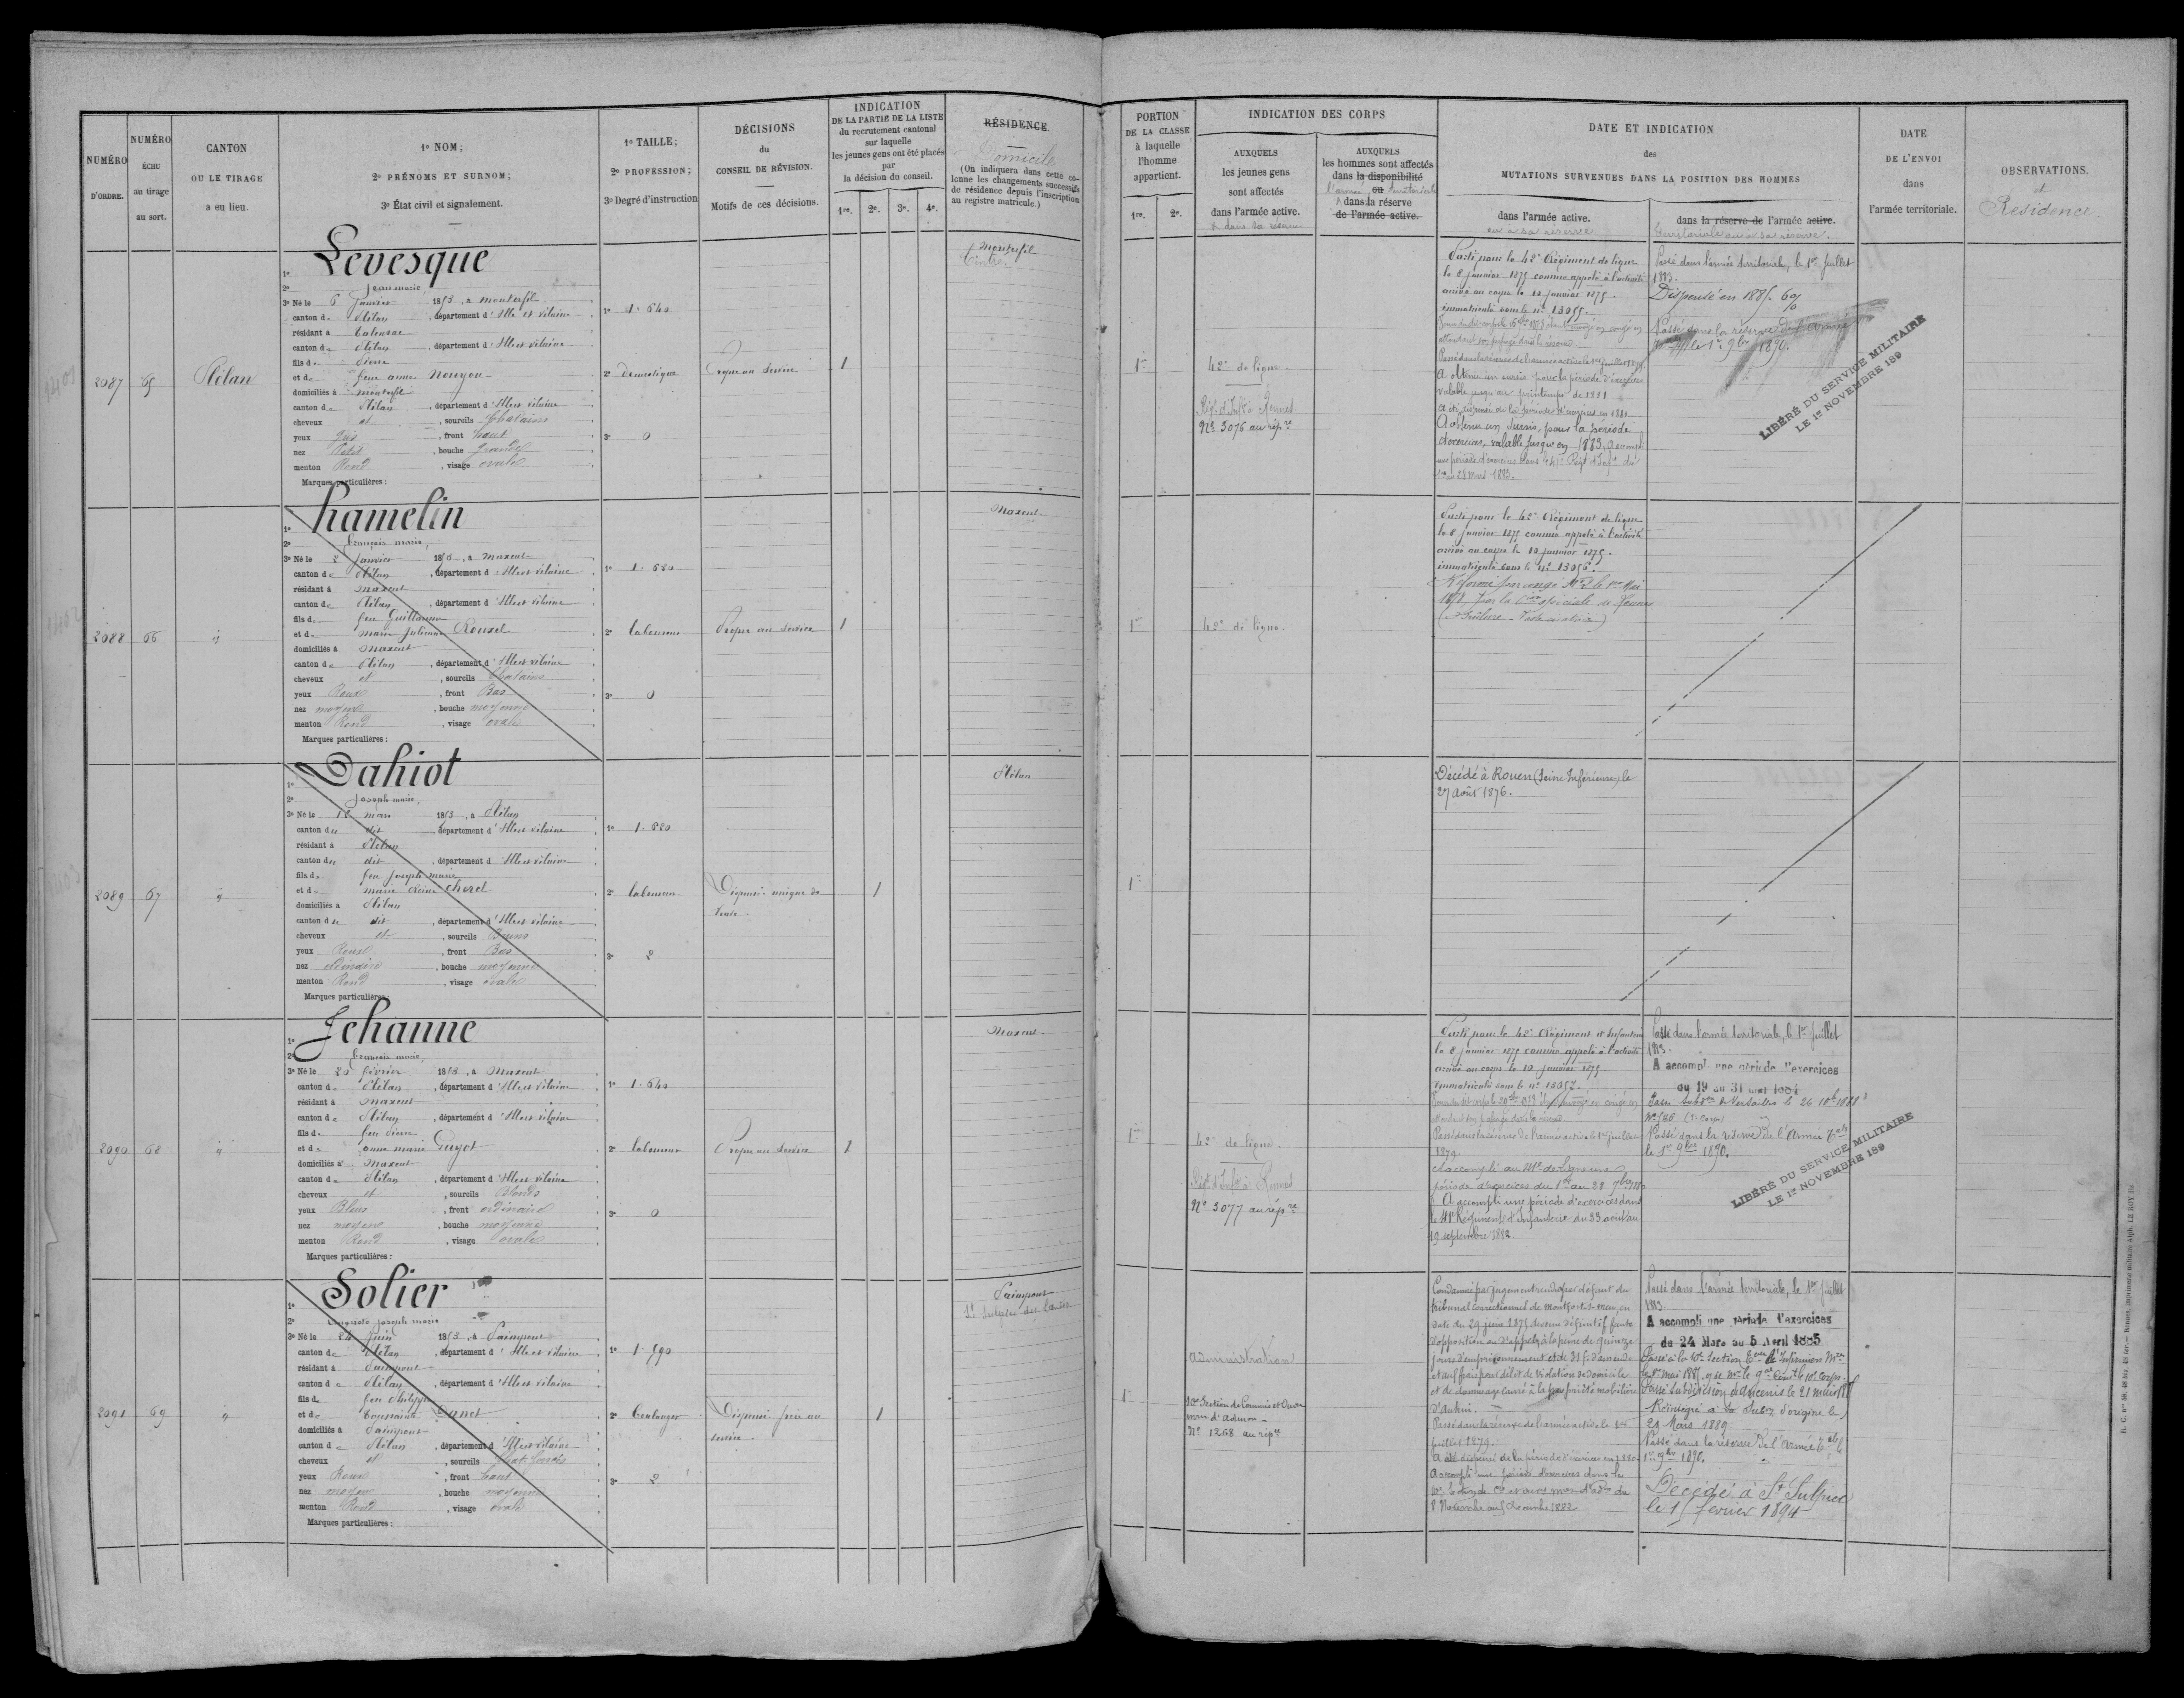 NUMÉRO
D'ORDRE.
NUMÉRO
ÉCHU
au tirage
au sort.
CANTON
OU LE TIRAGE
a eu lieu.
1º NOM;
2º PRÉNOMS ET SURNOM;
3º État civil et signalement.
1º TAILLE;
2º PROFESSION;
3º Degré d'instruction
DÉCISIONS
du
CONSEIL DE RÉVISION.
Motifs de ces décisions.
INDICATION
DE LA PARTIE DE LA LISTE
du recrutement cantonal
sur laquelle
les jeunes gens ont été placés
par
la décision du conseil.
1re. 2e. 3e. 4e.
RÉSIDENCE.
Domicile
(On indiquera dans cette co-
lonne les changements successifs
de résidence depuis l'inscription
au registre matricule.)
PORTION
DE LA CLASSE
à laquelle
l'homme
appartient.
1re. 2e.
INDICATION DES CORPS
AUXQUELS
les jeunes gens
sont affectés
dans l'armée active.
et dans sa réserve
AUXQUELS
les hommes sont affectés
dans la disponibilité
l'armée ou territoriale
dans la réserve
de l'armée active.
DATE ET INDICATION
des
MUTATIONS SURVENUES DANS LA POSITION DES HOMMES
dans l'armée active.
ou à sa réserve
dans la réserve de l'armée active.
territoriale ou à sa réserve.
DATE
DE L'ENVOI
dans
l'armée territoriale.
OBSERVATIONS.
et
Résidence.
2087 65 Plélan
1º Levesque
2º Jean marie,
3º Né le 6 Janvier 1853, à Monterfil
canton de Plélan, département d'Ille et Vilaine
résidant à Talensac
canton de Plélan, département d'Ille et Vilaine
fils de Pierre
et de feue anne Nouyou
domiciliés à Monterfil
canton de Plélan, département d'Ille et Vilaine
cheveux et, sourcils Chatains
yeux Gris, front haut
nez Petit, bouche Grande
menton Rond, visage ovale
Marques particulières :
1º 1.640
2º domestique
3º 0
Propre au service
1
Monterfil
1re
42e de ligne.
Régt. d'Inftie à Rennes
Nº 3076 au répre
Parti pour le 42e Régiment de ligne
le 8 janvier 1875 comme appelé à l'activité
arrivé au corps le 10 janvier 1875.
immatriculé sous le nº 13055.
Passé dans la réserve de l'armée active le 1er juillet 1879.
A obtenu un sursis pour la période d'exercices
valable jusqu'au printemps de 1881
A été dispensé de la période d'exercices en 1881
A obtenu un sursis, pour la période
d'exercices, valable jusqu'en 1883. A accompli
une période d'exercices dans le 41e Régt d'Infie du
1er au 28 mars 1883.
Passé dans l'armée territoriale, le 1er Juillet
1883.
Dispensé en 1885. 6%
Passé dans la réserve de l'Armée
le 1er 9bre 1890.
LIBÉRÉ DU SERVICE MILITAIRE
LE 1er NOVEMBRE 189
2088 66 "
1º hamelin
2º François marie,
3º Né le 2 Janvier 1853, à Maxent
canton de Plélan, département d'Ille et Vilaine
résidant à Maxent
canton de Plélan, département d'Ille et Vilaine
fils de feu Guillaume
et de Marie Julienne Rouxel
domiciliés à Maxent
canton de Plélan, département d'Ille et Vilaine
cheveux et, sourcils Chatains
yeux Roux, front Bas
nez moyen, bouche moyenne
menton Rond, visage ovale
Marques particulières :
1º 1.680
2º laboureur
3º 0
Propre au service
1
Maxent
1re
42e de ligne
Parti pour le 42e Régiment de ligne
le 8 janvier 1875 comme appelé à l'activité
arrivé au corps le 10 janvier 1875.
immatriculé sous le nº 13056.
Réformé par congé Nº 2 le 1er Mai
1878 par la Con spéciale de Rennes
2089 67 "
1º Dahiot
2º Joseph marie,
3º Né le 12 mars 1853, à Plélan
canton du dit, département d'Ille et Vilaine
résidant à Plélan
canton du dit, département d'Ille et Vilaine
fils de feu Joseph marie
et de marie Reine Chorel
domiciliés à Plélan
canton du dit, département d'Ille et Vilaine
cheveux et, sourcils Bruns
yeux Roux, front Bas
nez ordinaire, bouche moyenne
menton Rond, visage ovale
Marques particulières :
1º 1.680
2º laboureur
3º 2
Dispensé unique de
veuve.
1
Plélan
1re
Décédé à Rouen (Seine Inférieure) le
27 août 1876.
2090 68 "
1º Jehanne
2º François marie,
3º Né le 20 février 1853, à Maxent
canton de Plélan, département d'Ille et Vilaine
résidant à Maxent
canton de Plélan, département d'Ille et Vilaine
fils de feu Pierre
et de anne marie Guyot
domiciliés à Maxent
canton de Plélan, département d'Ille et Vilaine
cheveux et, sourcils Blonds
yeux Bleus, front ordinaire
nez moyen, bouche moyenne
menton Rond, visage ovale
Marques particulières :
1º 1.640
2º laboureur
3º 0
Propre au service
1
Maxent
1re
42e de ligne.
Régt. d'Inftie à Rennes
Nº 3077 au répre
Parti pour le 42e Régiment d'Infanterie
le 8 janvier 1875 comme appelé à l'activité
arrivé au corps le 10 janvier 1875.
Immatriculé sous le nº 13057.
Passé dans la réserve de l'armée active le 1er juillet
1879.
A accompli au 41e de Ligne une
période d'exercices du 1er au 28 7bre 1880
A accompli une période d'exercices dans
le 41e Régiment d'Infanterie du 23 août au
19 septembre 1882.
Passé dans l'armée territoriale, le 1er Juillet
1883.
A accompli une période d'exercices
du 19 au 31 mai 1884
Passé Subdon de Versailles le 24 10bre 1888
Passé dans la réserve de l'Armée Tale
le 1er 9bre 1890.
LIBÉRÉ DU SERVICE MILITAIRE
LE 1er NOVEMBRE 189
2091 69 "
1º Solier
2º Auguste Joseph marie
3º Né le 24 Juin 1853, à Paimpont
canton de Plélan, département d'Ille et Vilaine
résidant à Paimpont
canton de Plélan, département d'Ille et Vilaine
fils de feu Philippe
et de Toussainte Danet
domiciliés à Paimpont
canton de Plélan, département d'Ille et Vilaine
cheveux et, sourcils Chat. foncés
yeux Roux, front haut
nez moyen, bouche moyenne
menton Rond, visage ovale
Marques particulières :
1º 1.590
2º Boulanger
3º 2
Dispensé frère au
service.
1
Paimpont
1re
Administration
10e Section de Commis et Ouvr
mres d'admon
Nº 1268 au répre
Condamné par jugement rendu par défaut du
tribunal correctionnel de Montfort s. Meu, en
date du 29 juin 1875 devenu définitif faute
d'opposition ou d'appel, à la peine de quinze
jours d'emprisonnement et de 31 f. d'amende
et aux frais pour délit de violation de domicile
et de dommage causé à la propriété mobilière
d'autrui.
Passé dans la réserve de l'armée active le 1er
juillet 1879.
A été dispensé de la période d'exercices en 1880
A accompli une période d'exercices dans la
8 Novembre au 5 décembre 1882
Passé dans l'armée territoriale, le 1er Juillet
1883.
A accompli une période d'exercices
du 24 Mars au 5 Avril 1885
Passé Subdivision d'Ancenis le 21 mars
Réintégré à la Subon d'origine le
24 Mars 1889.
Passé dans la réserve de l'Armée Tale le
1er 9bre 1890.
Décédé à St Sulpice
le 15 février 1894